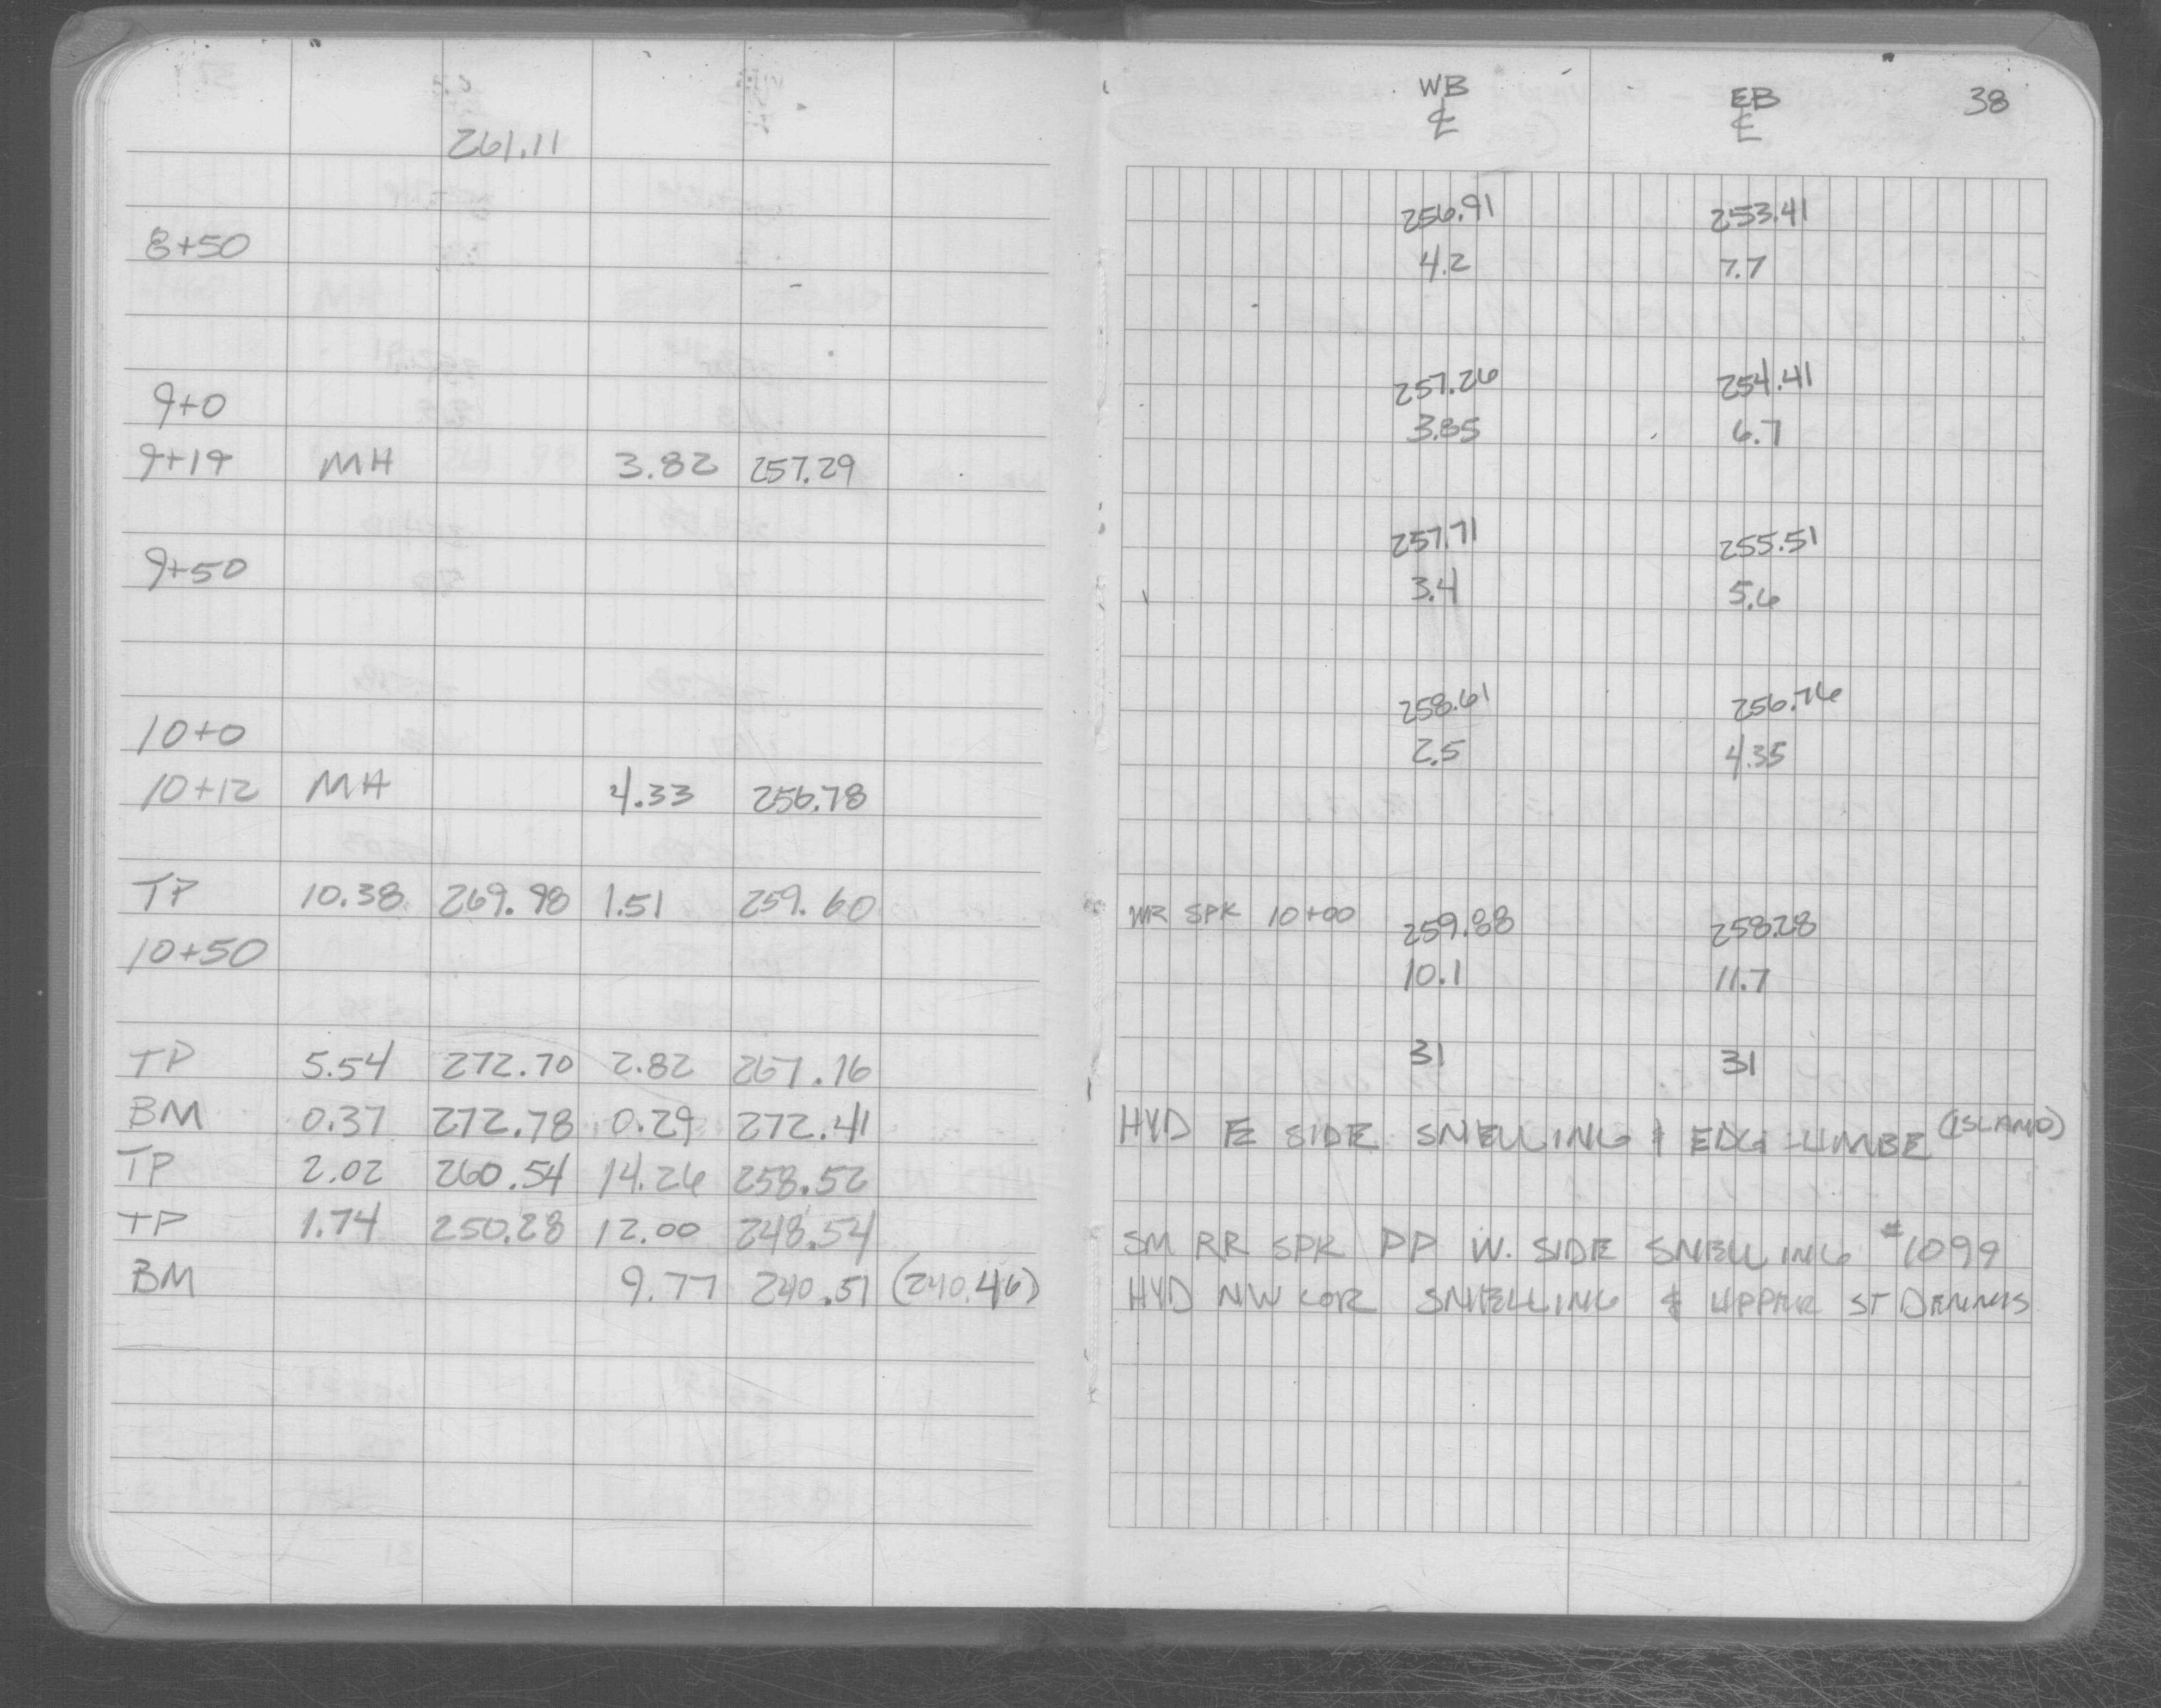 WB EB 38
℄ ℄
261.11
256.91 253.41
8+50 4.2 7.7
257.26 254.41
9+0 3.85 6.7
9+19 MH 3.82 257.29
257.71 255.51
9+50 3.4 5.6
258.61 256.76
10+0 2.5 4.35
10+12 MH 4.33 256.78
TP 10.38 269.98 1.51 259.60 WR SPK 10+00 259.88 258.28
10+50 10.1 11.7
31 31
TP 5.54 272.70 2.82 267.16
BM 0.37 272.78 0.29 272.41 HYD E SIDE SNELLING & EDGCUMBE (ISLAND)
TP 2.02 260.54 14.26 258.52
TP 1.74 250.28 12.00 248.54 SM RR SPK PP W. SIDE SNELLING #1099
BM 9.77 240.51 (240.46) HYD NW COR SNELLING & UPPER ST DENNIS